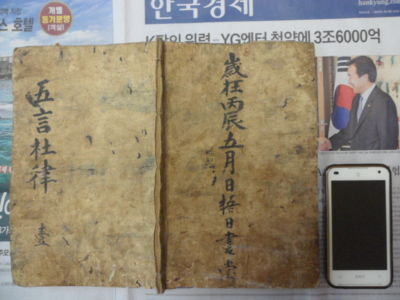 한국경제
hankyung.com
K팝의 위력…YG엔터 청약에 3조6000억
개별
등기분양
스 호텔
歲在丙辰五月日梧日書
五言杜律
壹